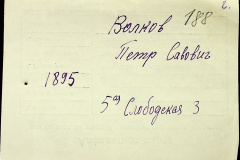 Волков 188
Петр Савович
1895
5ая Слободская 3